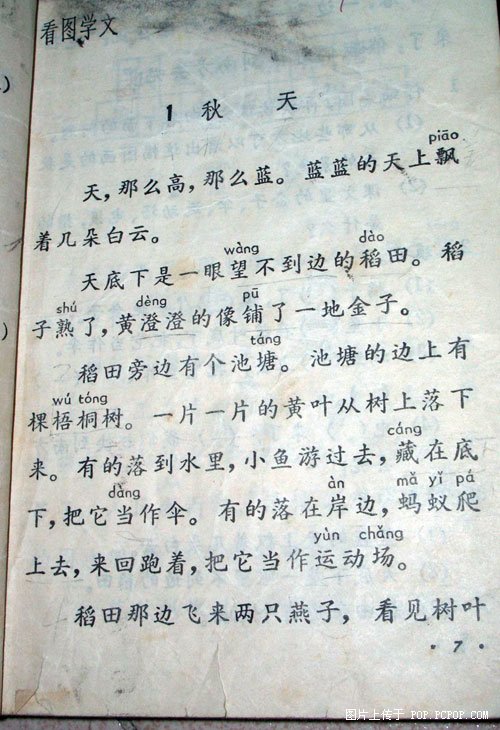 看图学文
1 秋 天
piāo
天，那么高，那么蓝。蓝蓝的天上飘
着几朵白云。
wàng dào
天底下是一眼望不到边的稻田。稻
shú dèng pū
子熟了，黄澄澄的像铺了一地金子。
táng
稻田旁边有个池塘。池塘的边上有
wú tóng
棵梧桐树。一片一片的黄叶从树上落下
cáng
来。有的落到水里，小鱼游过去，藏在底
dàng àn mǎ yǐ pá
下，把它当作伞。有的落在岸边，蚂蚁爬
yùn chǎng
上去，来回跑着，把它当作运动场。
稻田那边飞来两只燕子，看见树叶
· 7 ·
图片上传于 POP.PCPOP.COM